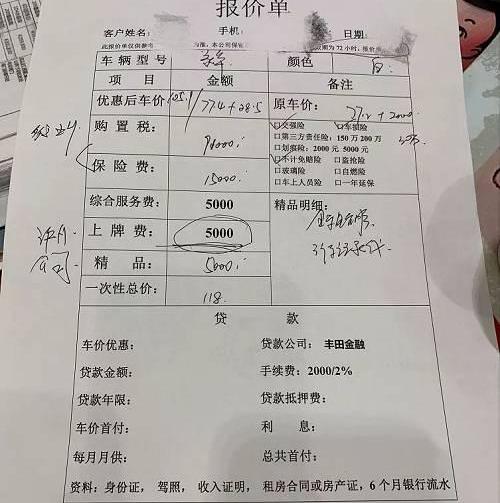 报价单
客户姓名: 手机: 日期:
此报价单仅供参考
车辆型号 颜色 白
项 目 金额 备注
优惠后车价 105.1 / 77.4+28.5 原车价:
购 置 税: 90000
保 险 费: 15000
□交强险 □车损险
□第三方责任险: 150万 200万
□划痕险: 2000元 5000元
□不计免赔险 □盗抢险
□玻璃险 □自燃险
□车上人员险 □一年延保
综合服务费: 5000 精品明细:
上 牌 费: 5000
精 品: 5000
一次性总价: 118.
贷 款
车价优惠: 贷款公司: 丰田金融
贷款金额: 手续费: 2000/2%
贷款年限: 贷款抵押费:
车价首付: 利 息:
每月月供: 总共首付:
资料: 身份证, 驾照, 收入证明, 租房合同或房产证, 6个月银行流水